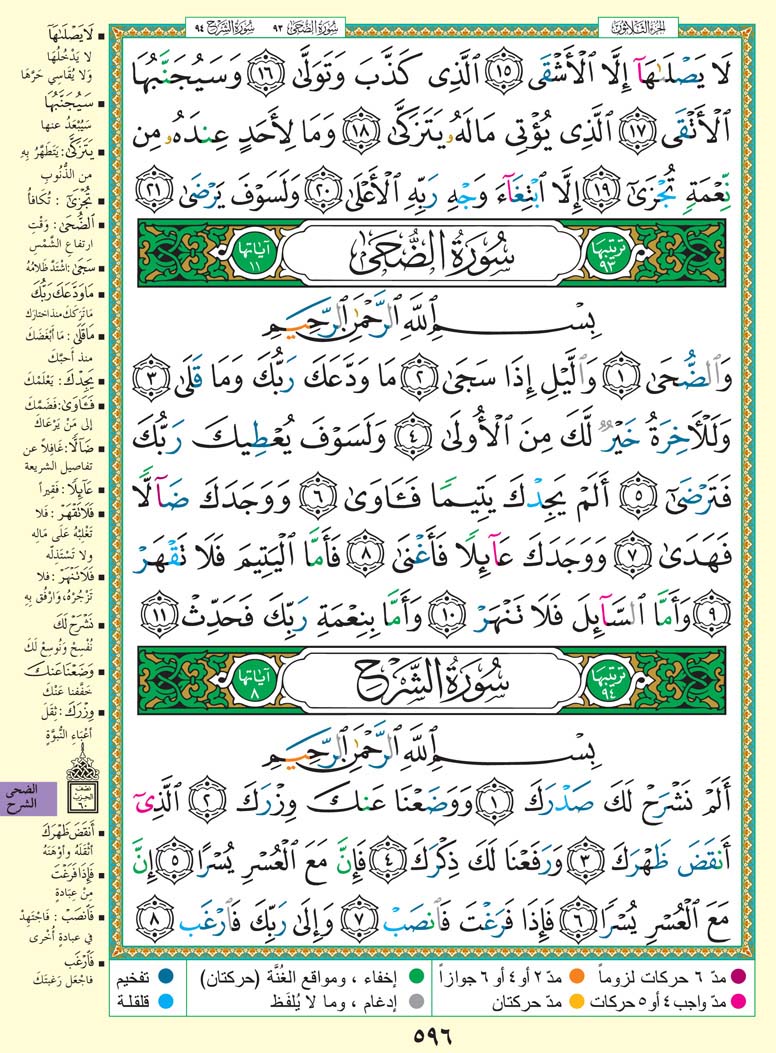 الجزء الثلاثون
سورة الضحى ٩٣
سورة الشرح ٩٤
لَا يَصْلَىٰهَآ إِلَّا ٱلْأَشْقَى ١٥ ٱلَّذِى كَذَّبَ وَتَوَلَّىٰ ١٦ وَسَيُجَنَّبُهَا
ٱلْأَتْقَى ١٧ ٱلَّذِى يُؤْتِى مَالَهُۥ يَتَزَكَّىٰ ١٨ وَمَا لِأَحَدٍ عِندَهُۥ مِن
نِّعْمَةٍ تُجْزَىٰٓ ١٩ إِلَّا ٱبْتِغَآءَ وَجْهِ رَبِّهِ ٱلْأَعْلَىٰ ٢٠ وَلَسَوْفَ يَرْضَىٰ ٢١
ترتيبها ٩٣
سُورَةُ الضُّحَىٰ
آياتها ١١
بِسْمِ ٱللَّهِ ٱلرَّحْمَٰنِ ٱلرَّحِيمِ
وَٱلضُّحَىٰ ١ وَٱلَّيْلِ إِذَا سَجَىٰ ٢ مَا وَدَّعَكَ رَبُّكَ وَمَا قَلَىٰ ٣
وَلَلْـَٔاخِرَةُ خَيْرٌ لَّكَ مِنَ ٱلْأُولَىٰ ٤ وَلَسَوْفَ يُعْطِيكَ رَبُّكَ
فَتَرْضَىٰٓ ٥ أَلَمْ يَجِدْكَ يَتِيمًا فَـَٔاوَىٰ ٦ وَوَجَدَكَ ضَآلًّا
فَهَدَىٰ ٧ وَوَجَدَكَ عَآئِلًا فَأَغْنَىٰ ٨ فَأَمَّا ٱلْيَتِيمَ فَلَا تَقْهَرْ
٩ وَأَمَّا ٱلسَّآئِلَ فَلَا تَنْهَرْ ١٠ وَأَمَّا بِنِعْمَةِ رَبِّكَ فَحَدِّثْ ١١
ترتيبها ٩٤
سُورَةُ الشَّرْحِ
آياتها ٨
بِسْمِ ٱللَّهِ ٱلرَّحْمَٰنِ ٱلرَّحِيمِ
أَلَمْ نَشْرَحْ لَكَ صَدْرَكَ ١ وَوَضَعْنَا عَنكَ وِزْرَكَ ٢ ٱلَّذِىٓ
أَنقَضَ ظَهْرَكَ ٣ وَرَفَعْنَا لَكَ ذِكْرَكَ ٤ فَإِنَّ مَعَ ٱلْعُسْرِ يُسْرًا ٥ إِنَّ
مَعَ ٱلْعُسْرِ يُسْرًا ٦ فَإِذَا فَرَغْتَ فَٱنصَبْ ٧ وَإِلَىٰ رَبِّكَ فَٱرْغَب ٨
لَا يَصْلَىٰهَآ
لا يَدْخُلُهَا
وَلَا يُقَاسِي حَرَّهَا
سَيُجَنَّبُهَا
سَيُبْعَدُ عنها
يَتَزَكَّىٰ: يَتَطَهَّرُ بِهِ
من الذُّنُوبِ
تُجْزَىٰٓ: تُكَافأُ
الضُّحَىٰ: وَقْتِ
ارتفاعِ الشَّمْسِ
سَجَىٰ: اشْتَدَّ ظَلامُهُ
مَا وَدَّعَكَ رَبُّكَ
مَا تَرَكَكَ منذ اختارك
مَا قَلَىٰ: مَا أَبْغَضَكَ
منذ أَحَبَّكَ
يَجِدْكَ: يَعْلَمْكَ
فَـَٔاوَىٰ: فَضَمَّكَ
إلى مَنْ يَرْعَاكَ
ضَآلًّا: غَافِلاً عن
تفاصيل الشريعة
عَآئِلًا: فقيراً
فَلَا تَقْهَرْ: فلا
تَغْلِبْهُ عَلَى مَالِهِ
ولا تَسْتَذِلَّه
فَلَا تَنْهَرْ: فلا
تَزْجُرْهُ، وَارْفُق بِهِ
نَشْرَحْ لَكَ
نُفْسِحْ وَنُوسِعْ لَكَ
وَضَعْنَا عَنكَ
خَفَّفنا عَنْكَ
وِزْرَكَ: ثِقَلَ
أعْبَاءِ النُّبوَّةِ
نصف
الحزب
٦٠
الضحى
الشرح
أَنقَضَ ظَهْرَكَ
أثْقَلَهُ وأوْهَنَهُ
فَإِذَا فَرَغْتَ
مِنْ عبَادَةٍ
فَٱنصَبْ: فَاجْتَهِدْ
في عبادةٍ أُخْرى
فَٱرْغَب
فاجْعَل رَغبتَكَ
مدّ ٦ حركات لزوماً
مدّ ٢ أو ٤ أو ٦ جوازاً
إخفاء ، ومواقع الغُنَّة (حركتان)
تفخيم
مدّ واجب ٤ أو ٥ حركات
مدّ حركتان
إدغام ، وما لا يُلفَظ
قلقلة
٥٩٦